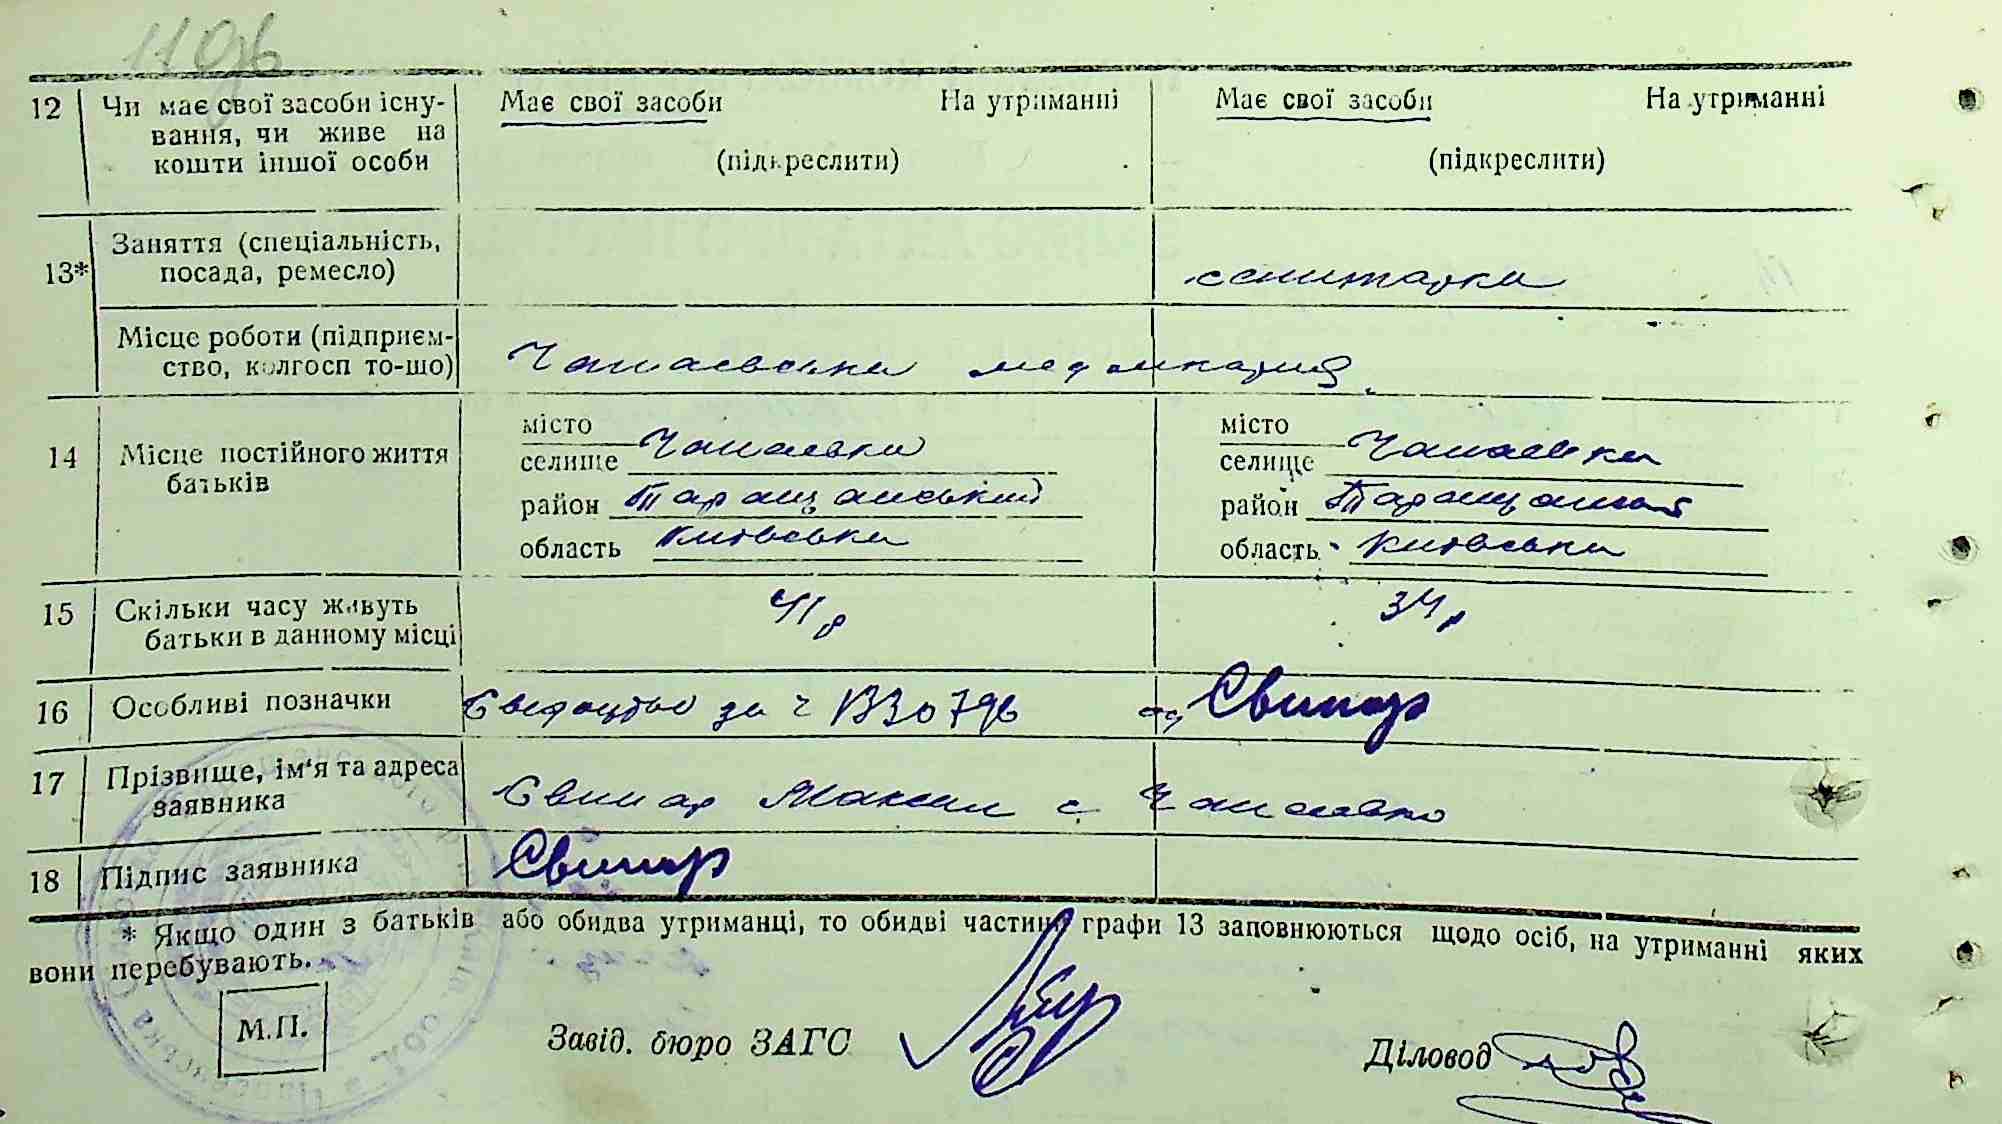 12 Чи має свої засоби існу- Має свої засоби На утриманні Має свої засоби На утриманні
вання, чи живе на
кошти іншої особи (підкреслити) (підкреслити)
13* Заняття (спеціальність,
посада, ремесло) санитарка
Місце роботи (підприєм-
ство, колгосп то-що)
14 Місце постійного життя
батьків
місто місто
селище Чапаевка селище Чапаевка
район Таращанський район
область Київська область Київська
15 Скільки часу живуть 41р 34р
батьки в данному місці
16 Особливі позначки за ч Свинар
17 Прізвище, ім'я та адреса
заявника Свинар Максим с Чапаевка
18 Підпис заявника Свинар
* Якщо один з батьків або обидва утриманці, то обидві частини графи 13 заповнюються щодо осіб, на утриманні яких
вони перебувають.
М.П.
Завід. бюро ЗАГС
Діловод